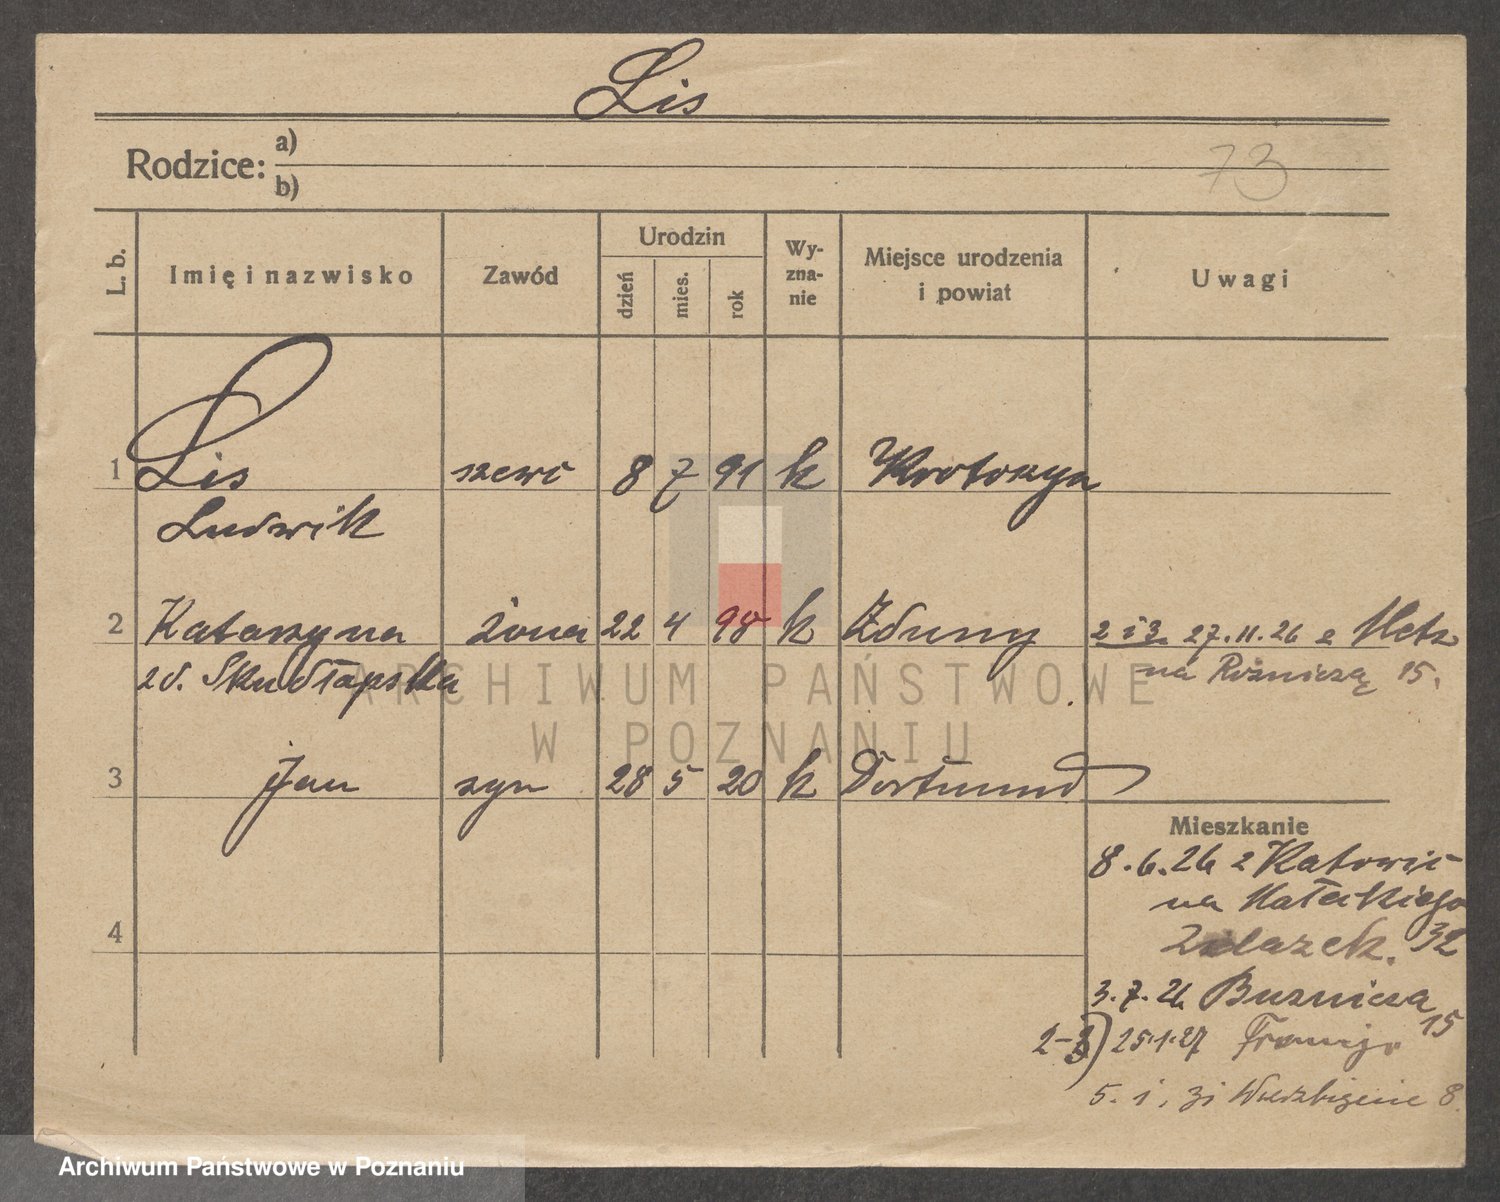 Lis
Rodzice: a)
b)
73
L. b.
Imię i nazwisko
Zawód
Urodzin
dzień
mies.
rok
Wy-
zna-
nie
Miejsce urodzenia
i powiat
Uwagi
1 Lis szewc 8 7 91 k Krotoszyn
Ludwik
2 Katarzyna żona 22 4 98 k Zduny 2 i 3. 27.11.26 z Metz
zd. Skudłapska na Różniczą 15.
ARCHIWUM PAŃSTWOWE
W POZNANIU
3 Jan syn 28 5 20 k Dortmund
Mieszkanie
8.6.26 z Katowic
na Małeckiego
32
4
3.7.26
15
2-3) 25.1.27 Francja
5. 1. 31 Wierzbięcice 8.
Archiwum Państwowe w Poznaniu